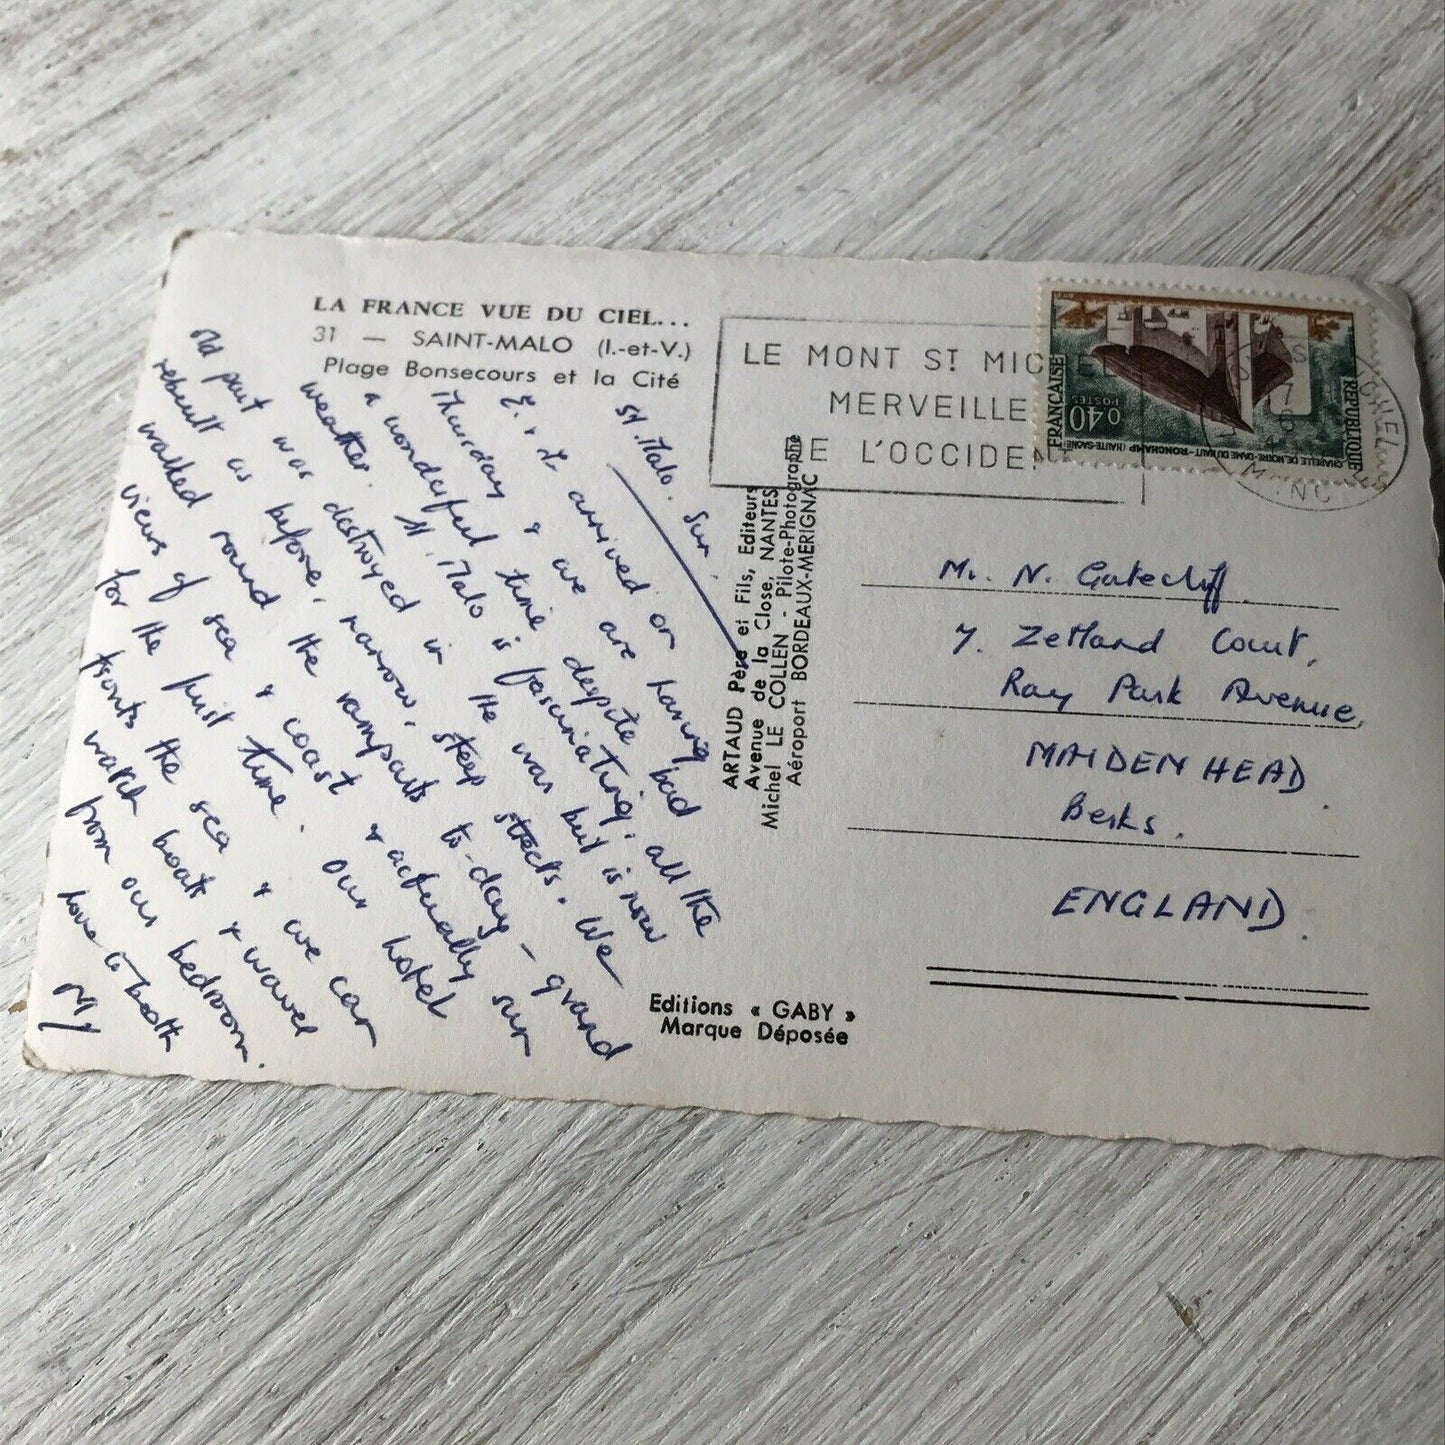 LA FRANCE VUE DU CIEL...
31 — SAINT-MALO (I.-et-V.)
Plage Bonsecours et la Cité
St. Malo. Sun.
E. & I. arrived on
Thursday & we are having
a wonderful time despite bad
weather. St. Malo is fascinating, all the
old part was destroyed in the war but is now
rebuilt as before, narrow, steep streets. We
walked round the ramparts to-day – grand
views of sea & coast & actually sun
for the first time. Our hotel
fronts the sea & we can
watch boats & waves
from our bedroom.
Love to both
My
ARTAUD Père et Fils, Editeurs
Avenue de la Close, NANTES
Michel LE COLLEN - Pilote-Photographe
Aéroport BORDEAUX-MERIGNAC
Editions « GABY »
Marque Déposée
LE MONT ST MICHEL
MERVEILLE
DE L'OCCIDEN
REPUBLIQUE
FRANÇAISE
0,40
POSTES
CHAPELLE DE NOTRE-DAME DU HAUT - RONCHAMP (HAUTE-SAÔNE)
Mr. N. Gatecliff.
7. Zetland Court,
Ray Park Avenue,
MAIDENHEAD.
Berks.
ENGLAND.